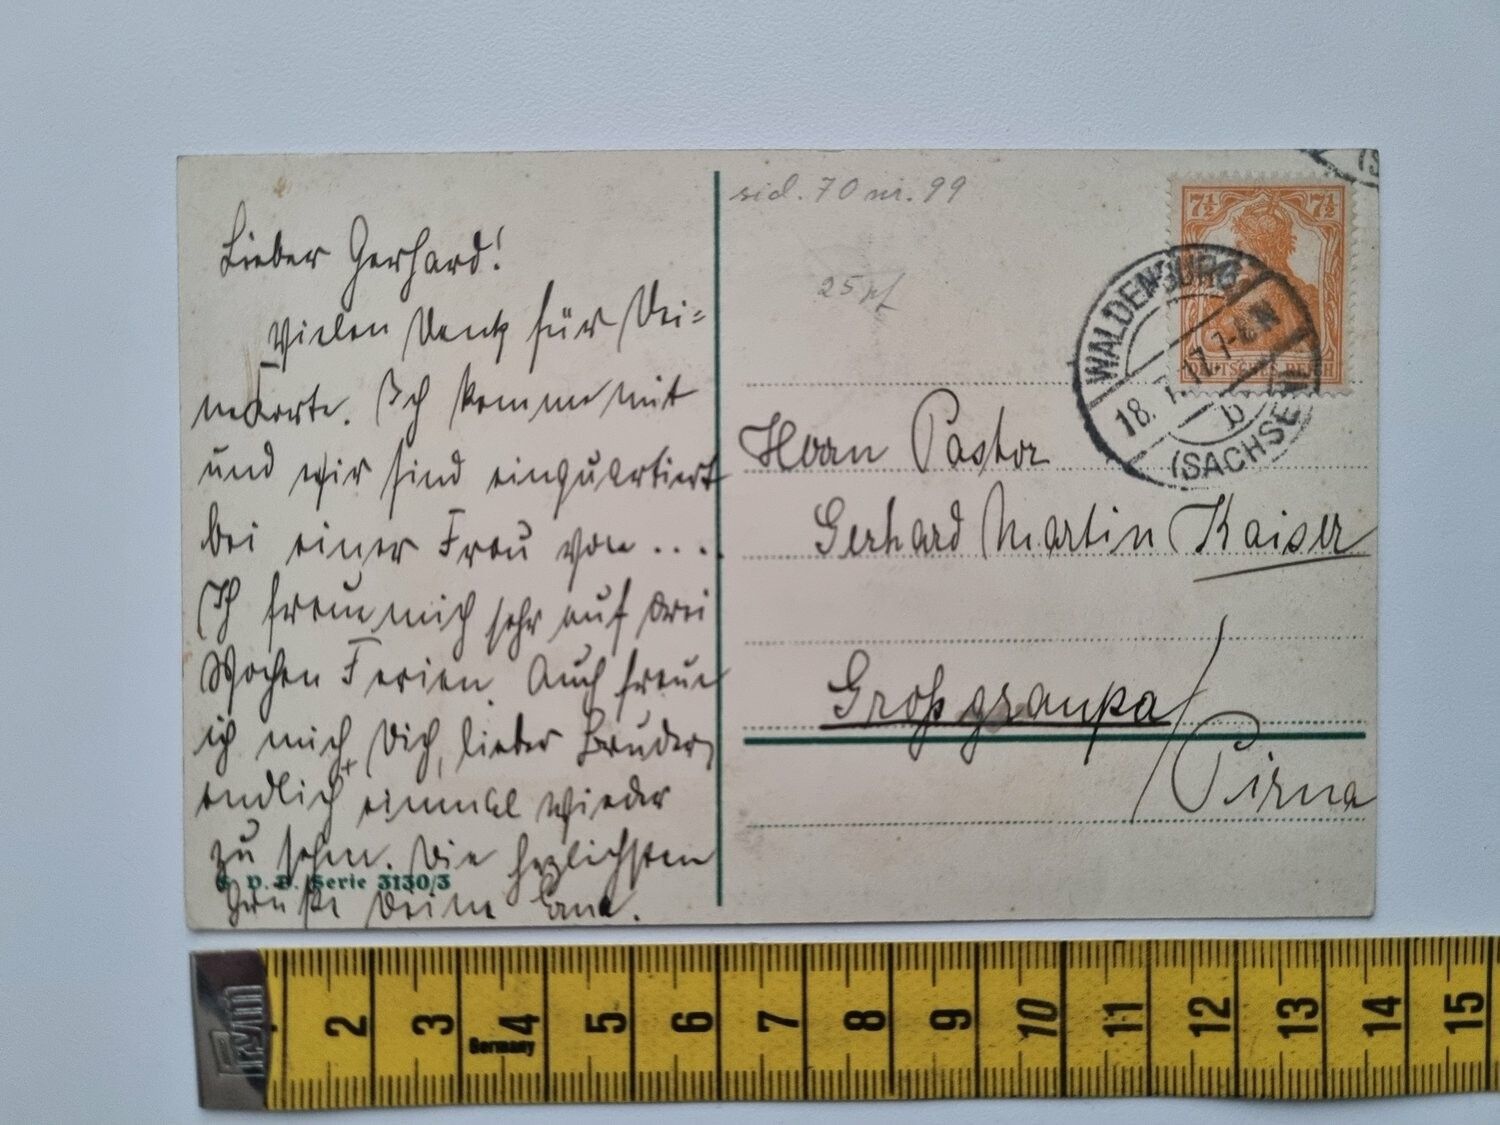 Lieber Gerhard!
Vielen Dank für Dei=
ne Karte. Ich komme mit
und wir sind einquartiert
bei einer Frau von ....
Ich freue mich sehr auf drei
Wochen Ferien. Auch freue
ich mich, Dich, lieber Bruder,
endlich einmal wieder
zu sehen. Die herzlichsten
Grüße Deine
V. B. Serie 3130/3
sid. 70 nr. 99
25 pf
7½ 7½
DEUTSCHES REICH
WALDENBURG
18. 1. 17. 7-8 N
b
(SACHSEN)
Herrn Pastor
Gerhard Martin Kaiser
Großgraupa/
Pirna
Prym
2 3 4 5 6 7 8 9 10 11 12 13 14 15
Germany